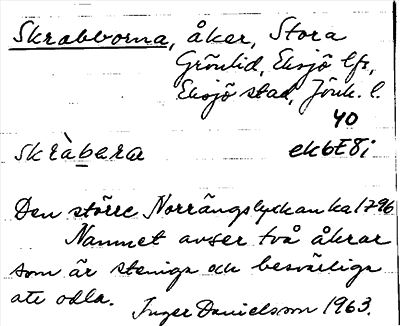 Skrabborna, åker, Stora
Grönlid, Eksjö lfs,
Eksjö stad, Jönk. l.
40
skràbara ek6E8i
Den större Norrängslyckan ka 1796
Namnet avser två åkrar
som är steniga och besvärliga
att odla. Inger Danielsson 1963.